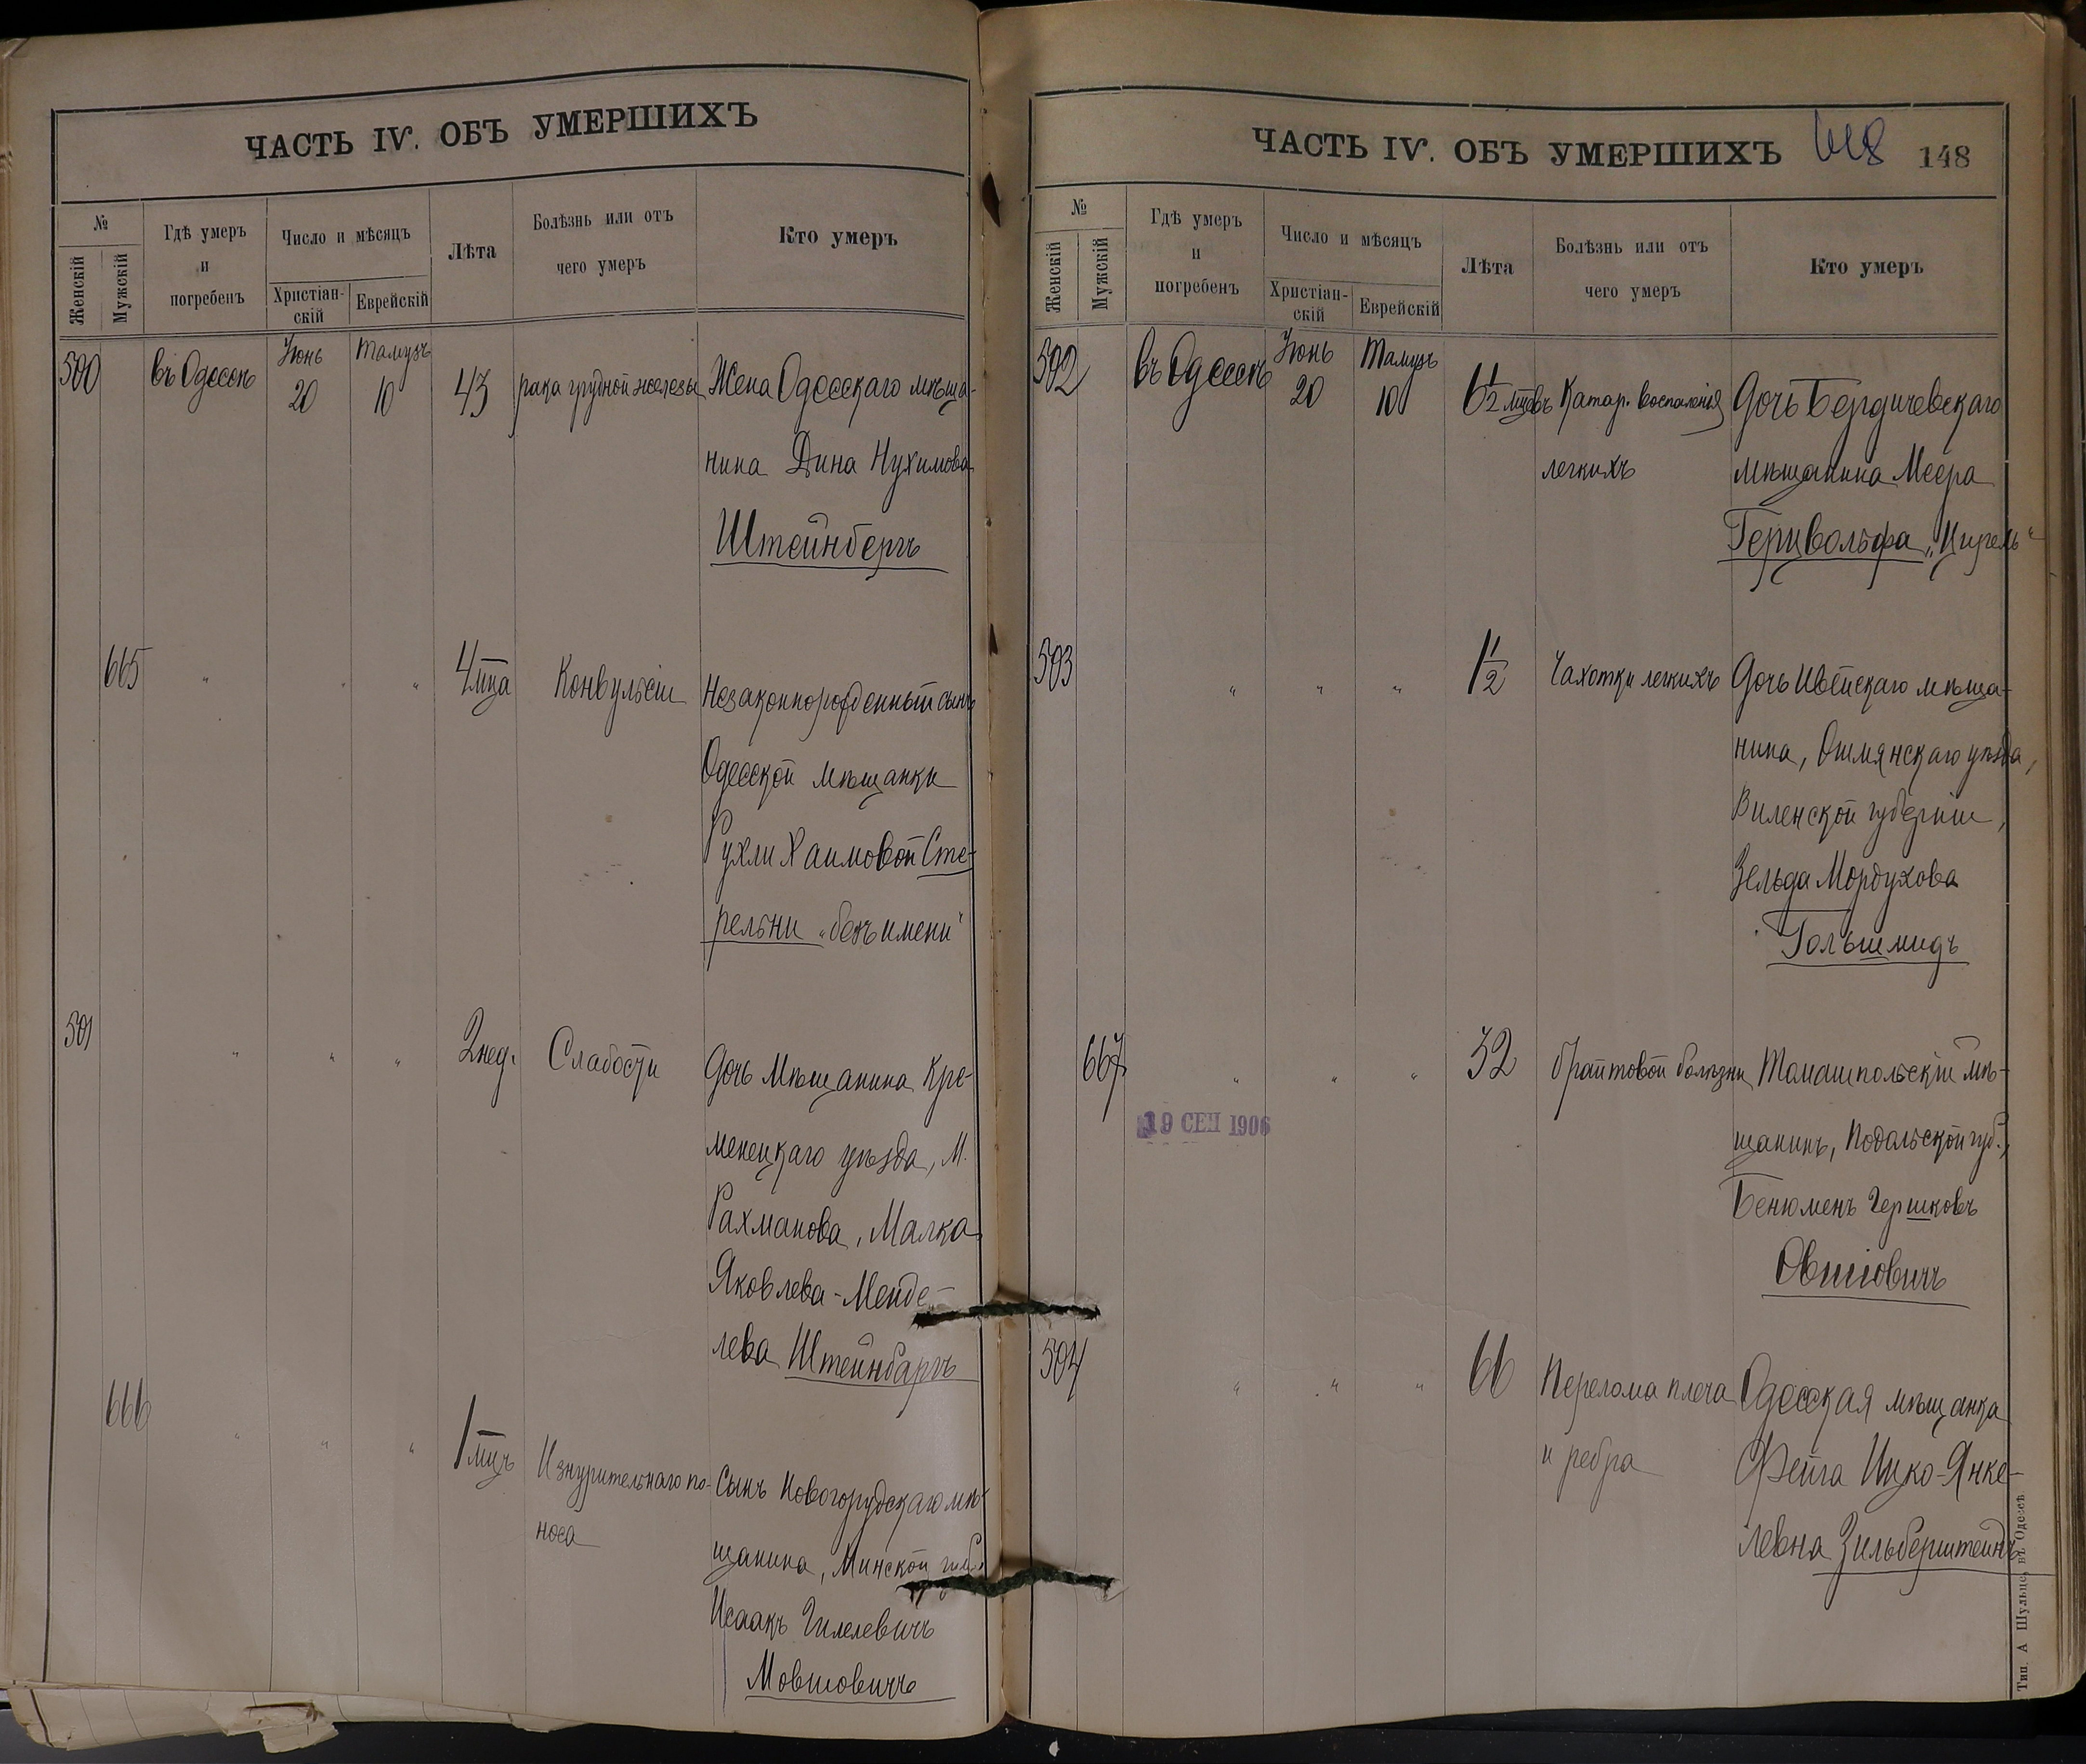 ЧАСТЬ IV. ОБЪ УМЕРШИХЪ
№
Женскій
Мужскій
Гдѣ умеръ
и
погребенъ
Число и мѣсяцъ
Христіан-
скій
Еврейскій
Лѣта
Болѣзнь или отъ
чего умеръ
Кто умеръ
500 въ Одессѣ Іюнь 20 Тамузъ 10 43 рака грудной железы Жена Одесскаго мѣща-
нина Дина Нухимова
Штейнбергъ
665 " " " 4 мца Конвульсіи Незаконнорожденный сынъ
Одесской мѣщанки
Рухли Хаимовой Сте-
рельни „безъ имени"
501 " " " 2 нед. Слабости Дочь Мѣщанина Кре-
менецкаго уѣзда, М.
Рахманова, Малка
Яковлева-Менде-
лева Штейнбаргъ
666 " " " 1 мцъ Изнурительнаго по- Сынъ Новогрудскаго мѣ-
носа
щанина, Минской губ.
Исаакъ Гилелевичъ
Мовшовичъ
ЧАСТЬ IV. ОБЪ УМЕРШИХЪ 148
№
Женскій
Мужскій
Гдѣ умеръ
и
погребенъ
Число и мѣсяцъ
Христіан-
скій
Еврейскій
Лѣта
Болѣзнь или отъ
чего умеръ
Кто умеръ
502 въ Одессѣ Іюнь 20 Тамузъ 10 6 1/2 мцевъ Катар. воспаленія Дочь Бердичевскаго
легкихъ мѣщанина Меера
Герцвольфа „Цирель"
503 " " " 1 1/2 Чахотки легкихъ Дочь Ивейскаго мѣща-
нина, Ошмянскаго уѣзда,
Виленской губерніи,
Зельда Мордухова
Гольшмидъ
667 " " " 32 брайтовой болѣзни Томашпольскій мѣ-
19 СЕН 1906
щанинъ, Подольской губ.,
Бенюменъ Гершковъ
Овшіовичъ
504 " " " 66 Перелома плеча Одесская мѣщанка
и ребра Фейга Ицко-Янке-
левна Зильберштейнъ
Тип. А Шульце, въ Одессѣ